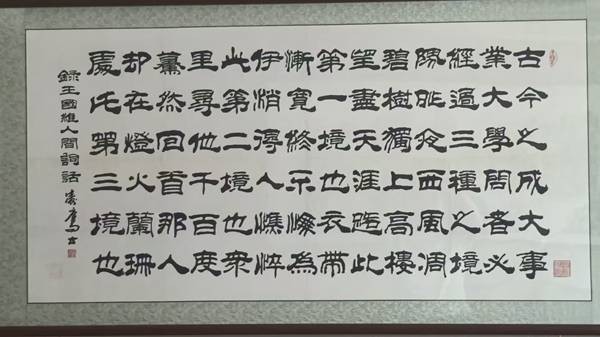 古今之成大事
業大學問者必
經過三種之境
界昨夜西風凋
碧樹獨上高樓
望盡天涯路此
第一境也衣帶
漸寬終不悔為
伊消得人憔悴
此第二境也衆
里尋他千百度
驀然回首那人
却在燈火蘭珊
處此第三境也
錄王國維人間詞話